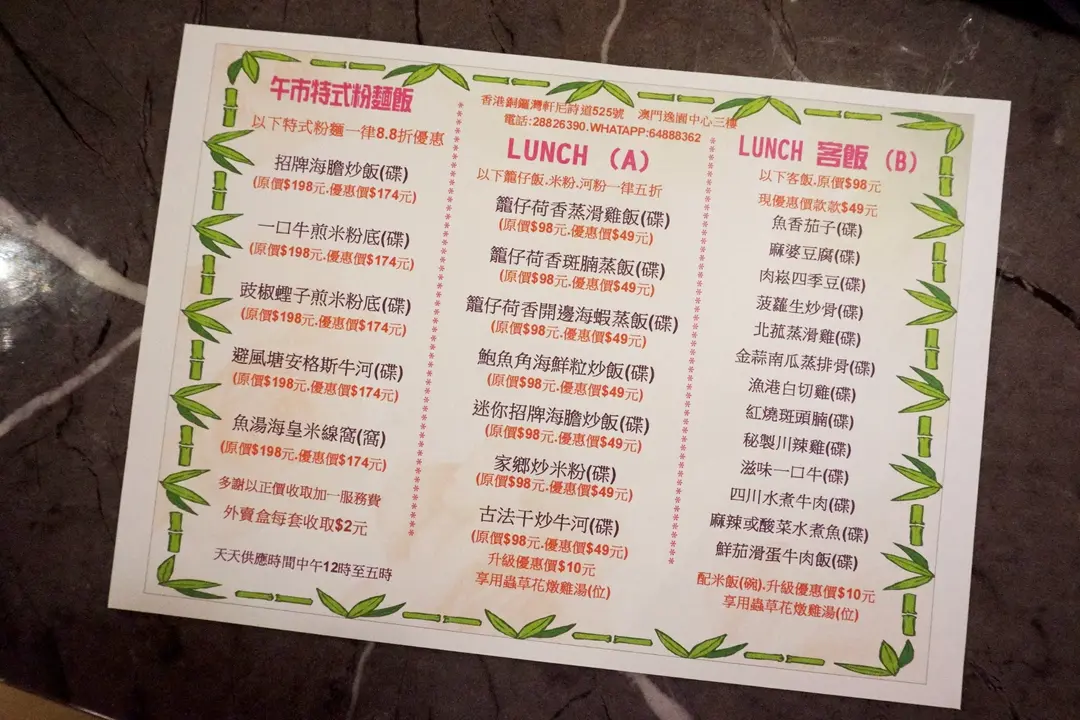 午市特式粉麵飯
以下特式粉麵一律8.8折優惠
招牌海膽炒飯(碟)
(原價$198元.優惠價$174元)
一口牛煎米粉底(碟)
(原價$198元.優惠價$174元)
豉椒蟶子煎米粉底(碟)
(原價$198元.優惠價$174元)
避風塘安格斯牛河(碟)
(原價$198元.優惠價$174元)
魚湯海皇米線窩(窩)
(原價$198元.優惠價$174元)
多謝以正價收取加一服務費
外賣盒每套收取$2元
天天供應時間中午12時至五時
香港銅鑼灣軒尼詩道525號 澳門逸園中心三樓
電話:28826390.WHATAPP:64888362
LUNCH (A)
以下籠仔飯.米粉.河粉一律五折
籠仔荷香蒸滑雞飯(碟)
(原價$98元.優惠價$49元)
籠仔荷香斑腩蒸飯(碟)
(原價$98元.優惠價$49元)
籠仔荷香開邊海蝦蒸飯(碟)
(原價$98元.優惠價$49元)
鮑魚角海鮮粒炒飯(碟)
(原價$98元.優惠價$49元)
迷你招牌海膽炒飯(碟)
(原價$98元.優惠價$49元)
家鄉炒米粉(碟)
(原價$98元.優惠價$49元)
古法干炒牛河(碟)
(原價$98元.優惠價$49元)
升級優惠價$10元
享用蟲草花燉雞湯(位)
LUNCH 客飯 (B)
以下客飯.原價$98元
現優惠價款款$49元
魚香茄子(碟)
麻婆豆腐(碟)
肉崧四季豆(碟)
菠蘿生炒骨(碟)
北菰蒸滑雞(碟)
金蒜南瓜蒸排骨(碟)
漁港白切雞(碟)
紅燒斑頭腩(碟)
秘製川辣雞(碟)
滋味一口牛(碟)
四川水煮牛肉(碟)
麻辣或酸菜水煮魚(碟)
鮮茄滑蛋牛肉飯(碟)
配米飯(碗).升級優惠價$10元
享用蟲草花燉雞湯(位)